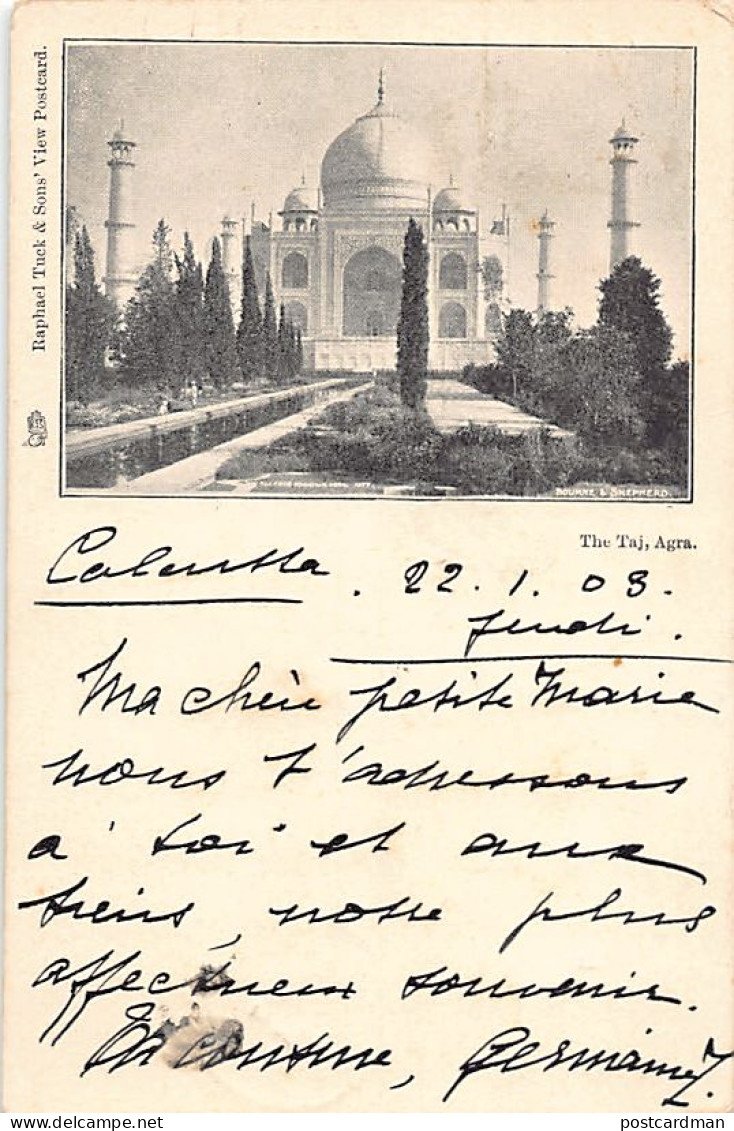 Raphael Tuck & Sons' View Postcard.
BOURNE & SHEPHERD.
The Taj, Agra.
Calcutta. 22.1.03.
Jeudi.
Ma chère petite Marie
nous t'adressons
à toi et aux
tiens, notre plus
affectueux souvenir.
Ta cousine, Germaine
postcardman